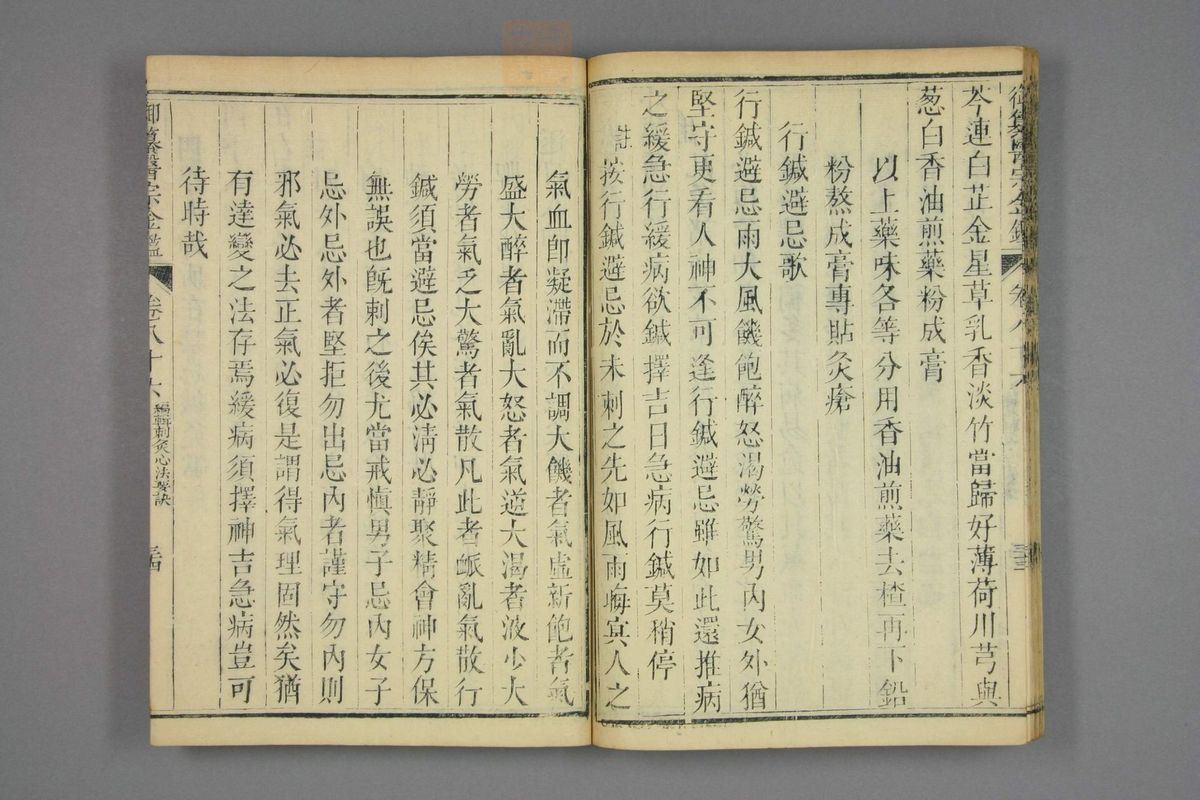 御纂醫宗金鑑 卷八十六 三十三
芩連白芷金星草乳香淡竹當歸好薄荷川芎與
葱白香油煎藥粉成膏
以上藥味各等分用香油煎藥去楂再下鉛
粉熬成膏專貼灸瘡
行鍼避忌歌
行鍼避忌雨大風饑飽醉怒渴勞驚男內女外猶
堅守更看人神不可逢行鍼避忌雖如此還推病
之緩急行緩病欲鍼擇吉日急病行鍼莫稍停
註按行鍼避忌於未刺之先如風雨晦㝠人之
氣血卽凝滯而不調大饑者氣虛新飽者氣
盛大醉者氣亂大怒者氣逆大渴者液少大
勞者氣乏大驚者氣散凡此者脈亂氣散行
鍼須當避忌俟其必淸必靜聚精會神方保
無誤也旣刺之後尤當戒慎男子忌內女子
忌外忌外者堅拒勿出忌內者謹守勿內則
邪氣必去正氣必復是謂得氣理固然矣猶
有達變之法存焉緩病須擇神吉急病豈可
待時哉
御纂醫宗金鑑 卷八十六 編輯刺灸心法要訣 三十四